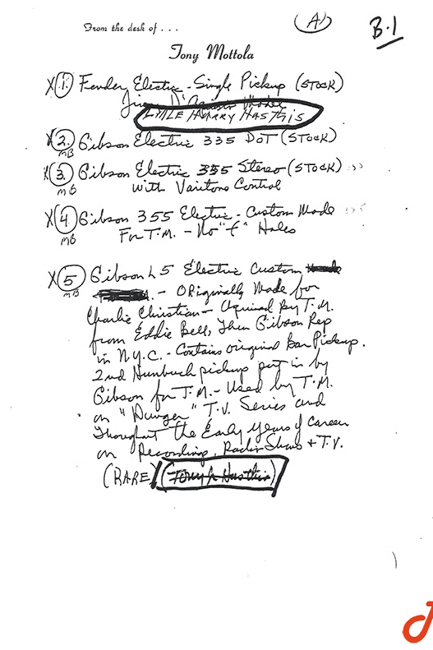 From the desk of . . .
(A)
B.1
Tony Mottola
X 1. Fender Electric - Single Pickup (STOCK)
LITTLE HARRY HAS THIS
X 2. Gibson Electric 335 DOT (STOCK)
MB
X 3. Gibson Electric 355 Stereo (STOCK)
MB With Varitone Control
X 4 Gibson 355 Electric - Custom Made
MB For T.M. - No "f" Holes
X 5 Gibson L5 Electric Custom
MB - Originally Made for
Charlie Christian - Aquired by T.M.
from Eddie Bell, Then Gibson Rep
in N.Y.C. - Contains original Bar Pickup.
2nd Humbuck pickup put in by
Gibson for T.M. - Used by T.M.
on "Danger" T.V. Series and
Throughout the Early years of Career
on Recordings, Radio Shows + T.V.
(RARE) (Tony Jr Has this)